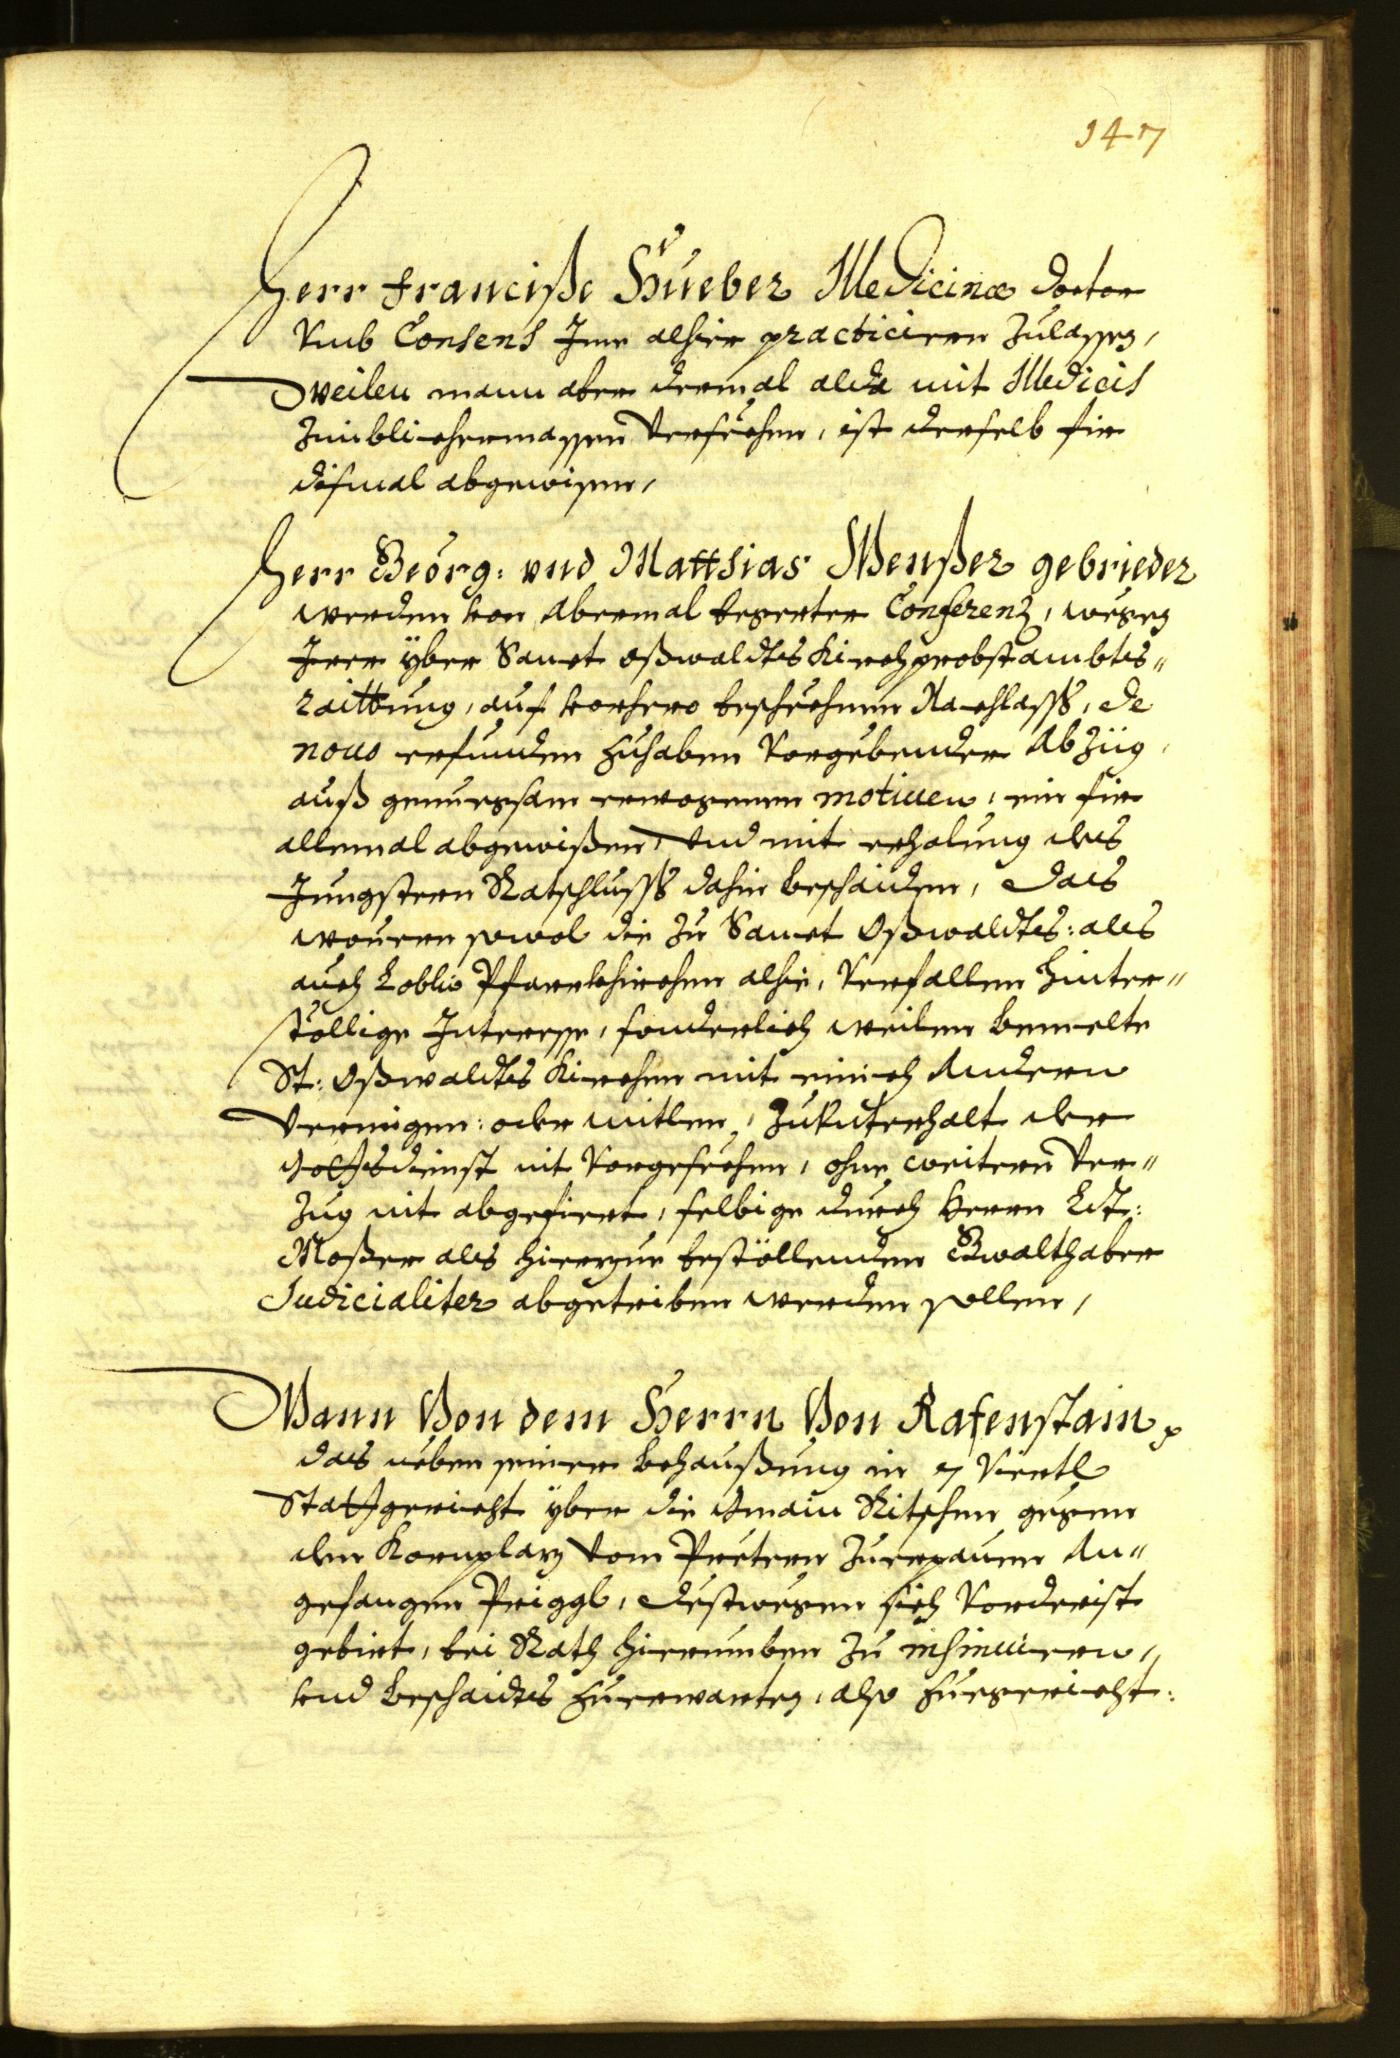 147
Herr Francißc Hueber Medicinæ doctor
Vmb Consens Ime alhier practiciern Zulassen,
Weilen mann aber dermal alda mit Medicis
Zimblichermassen Versechen, ist derselb fir
dismal abgewisen,
Herr Georg: vnd Matthias Menßer gebrieder
werden von abermal begerter Conferenz, wegen
Irer yber Sanct Oßwaldts Kirchprobstambts"
raittung, auf vorhero beschechnen Nachlasß, de
nouo erfunden zuhaben Vorgebender Abzüg,
auß genuegsam erwognen motiuen, ein fir
allemal abgewißen, Vnd mit erholung des
Jungstern Ratschlusß dahin beschaiden, das
wouern sowol die zu Sanct Oßwaldts: als
auch Loblic Pfarrkhirchen alhie, Verfallen hinter"
stöllige Interesse, sonderlich weilen bemelte
St: Oßwaldts Kirchen mit einich Andern
Vermigen: oder mitlen, zu Vnterhalt der
Gottsdienst nit Vorgesechen, ohne weitern Ver"
Zug nit abgefiert, selbige durch Herrn Lct:
Moßer als hierzue bestöllenden Gwalthaber
Judicialiter abgetriben werden sollen,
Wann Von dem Herrn Von Rafenstain
das neben seiner behaußung in 7 Viertl
Stattgericht yber die Gmain Ritschen gegen
den Kornplaz vom Petern Zuerpauen An"
gefangen Priggl, destwegen sich Vorderist
gebirt, bei Rath hierumben zu insinuiern,
vnd beschaidts zuerwarten, also zuegericht: